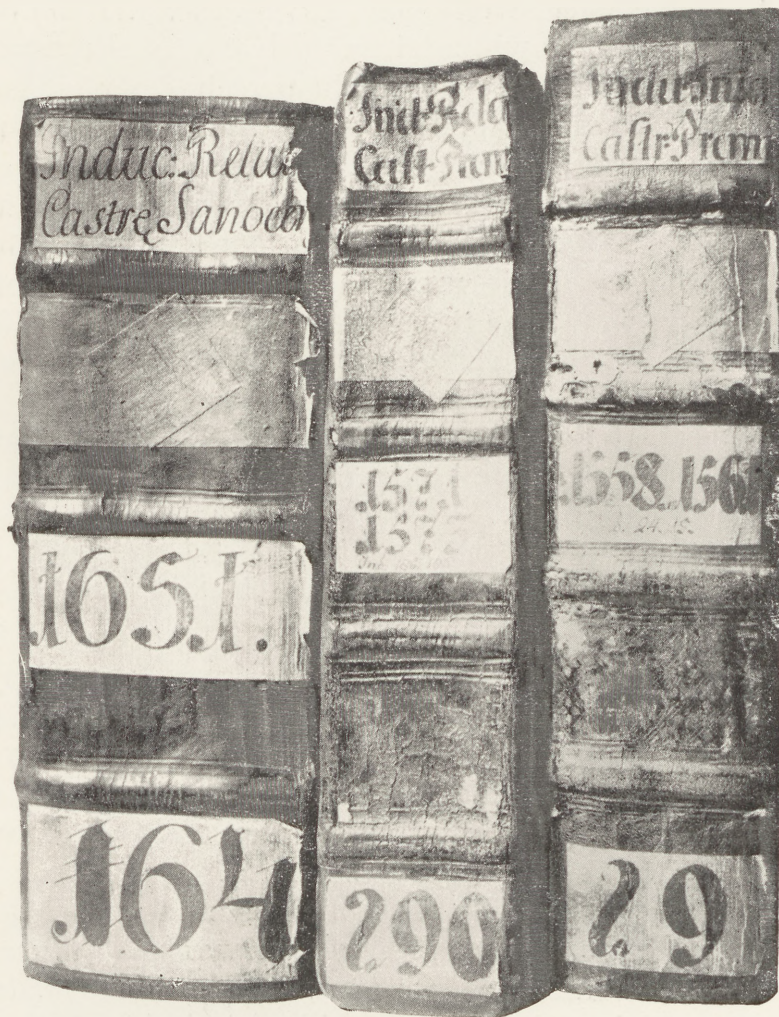 Induc: Relat
Castrę Sanocen
1651.
164
Ind: Rela
Cast: Prem
1571
157
290
Castr: Prem
1558. 1561
29